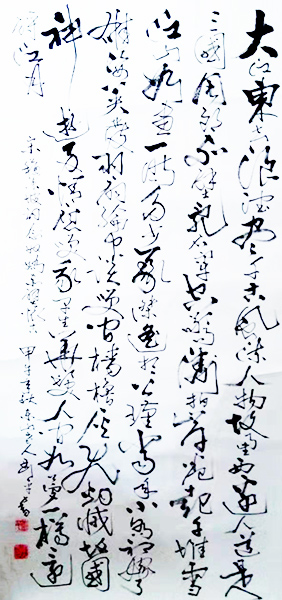 大江東去浪淘盡千古風流人物故壘西邊人道是
三國周郎赤壁亂石穿空驚濤拍岸捲起千堆雪
江山如畫一時多少豪傑遙想公瑾當年小喬初嫁了
雄姿英發羽扇綸巾談笑間檣櫓灰飛煙滅故國
神遊多情應笑我早生華髮人間如夢一樽還
酹江月
宋蘇東坡詞念奴嬌赤壁懷古 甲午 秋